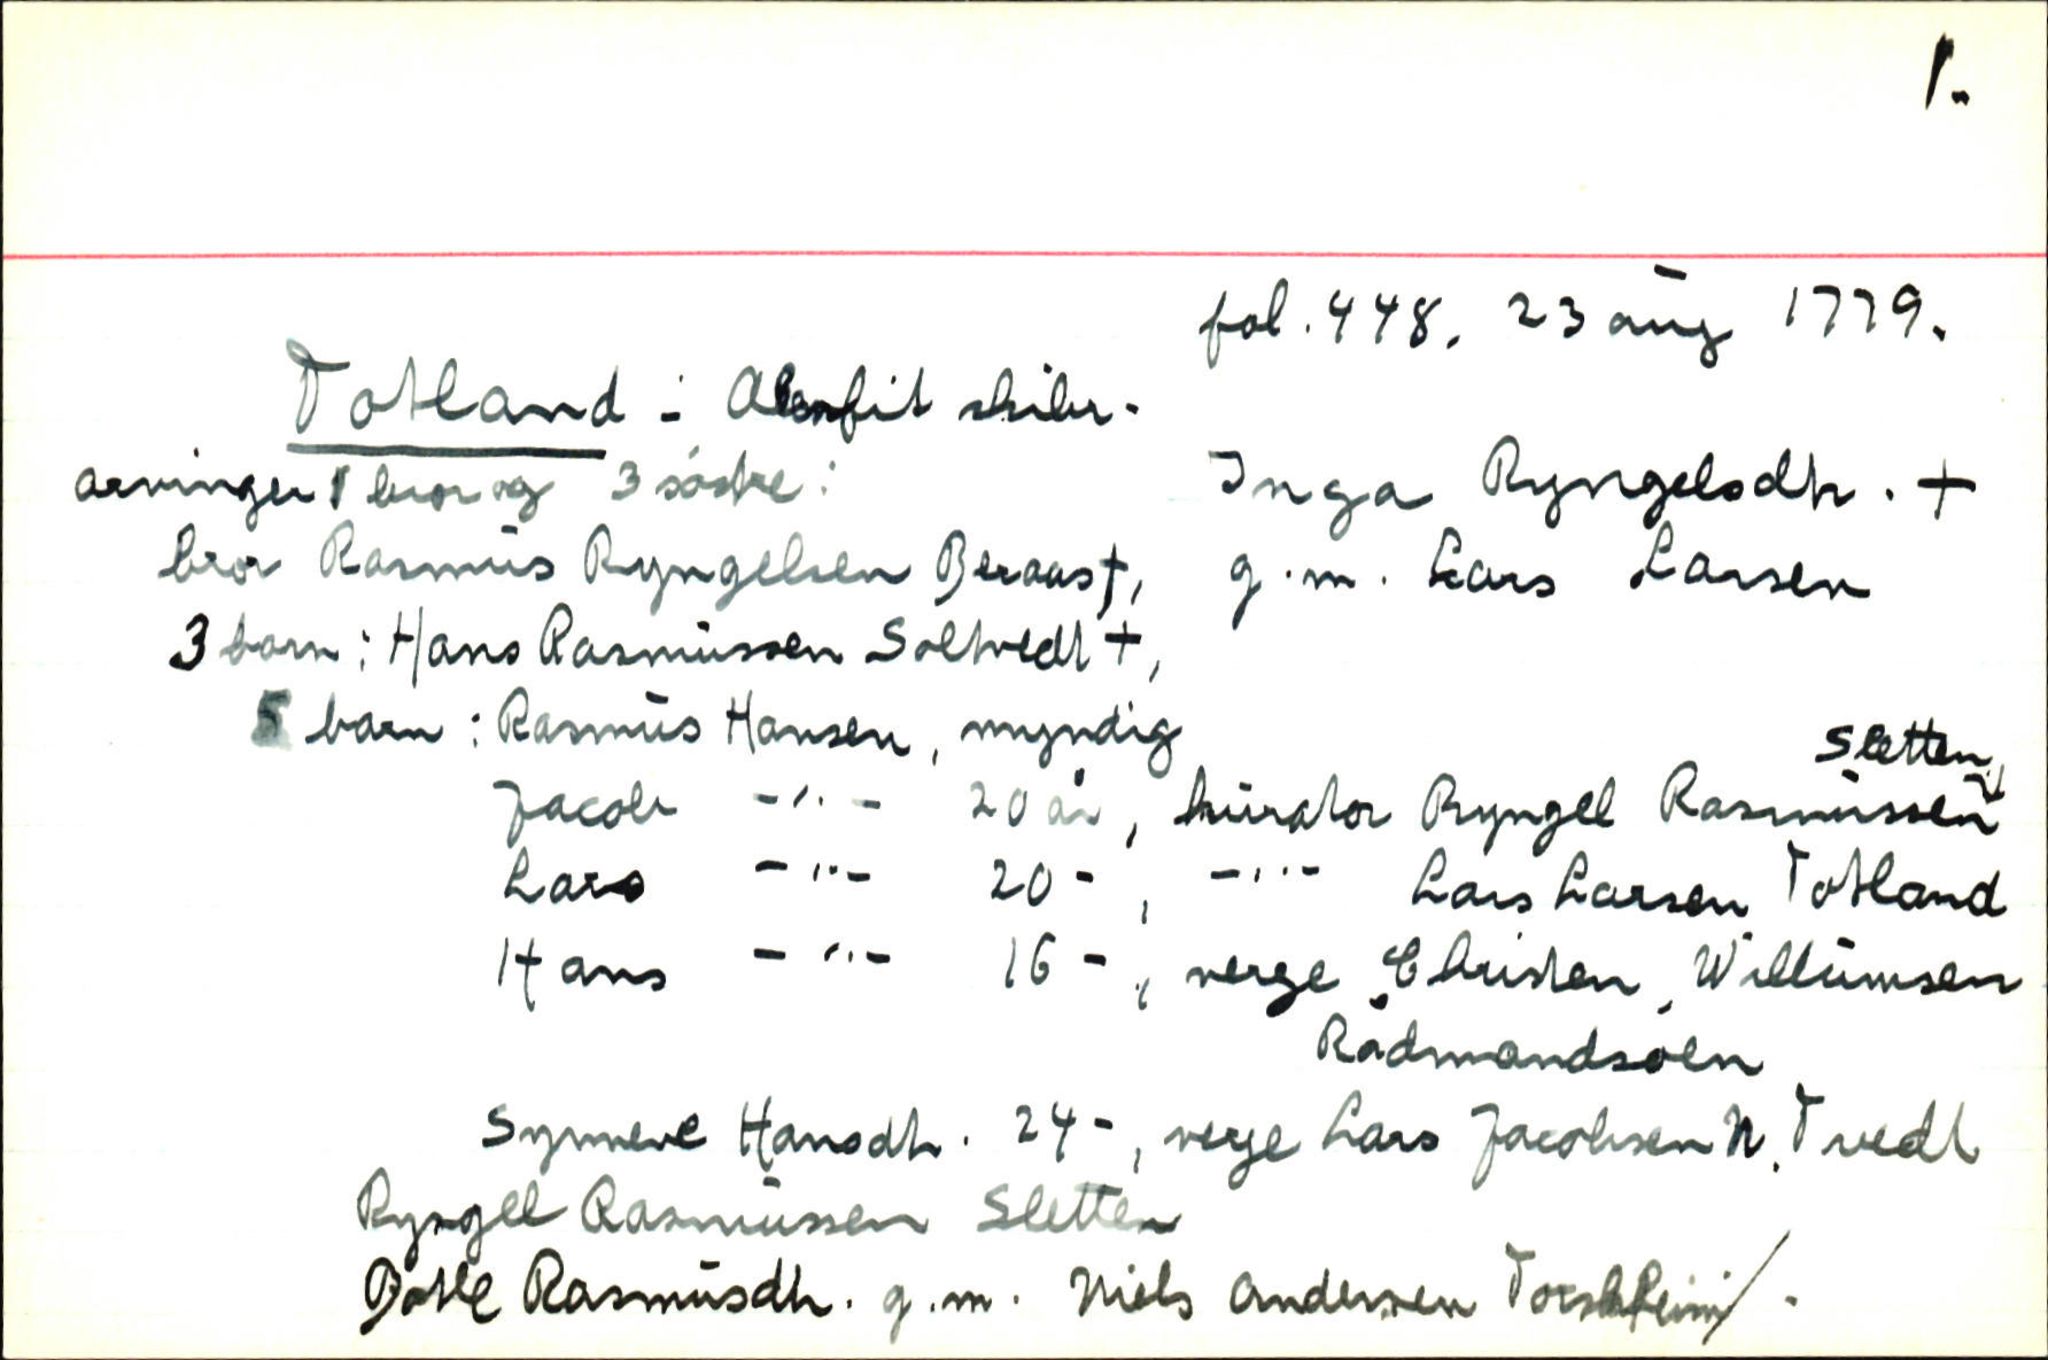 1.
fol. 448. 23 aug 1779.
Totland : Alenfit skibr.
arvinger 1 bror og 3 søstre : Inga Ryngelsdtr. +
bror Rasmus Ryngelsen Beraas †, g.m. Lars Larsen
3 barn : Hans Rasmussen Soltvedt +,
5 barn : Rasmus Hansen, myndig
Sletten,
Jacob -"- 20 år, kurator Ryngel Rasmussen
Lars -"- 20 -, -"- Lars Larsen Totland
Hans -"- 16 -, verge Christen Willumsen
Rådmandsøen
Synneve Hansdtr. 24 -, verge Lars Jacobsen N. Tvedt
Ryngel Rasmussen Sletten
Botle Rasmusdtr. g.m. Niels Andersen Torskheim/.